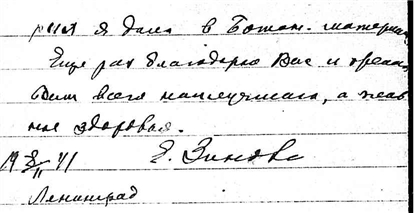 рия я дала в Ботан. материал
Еще раз благодарю Вас и желаю
Вам всего наилучшего, а глав
ное здоровья.
19 8/II 41 Е. Зинова
Ленинград